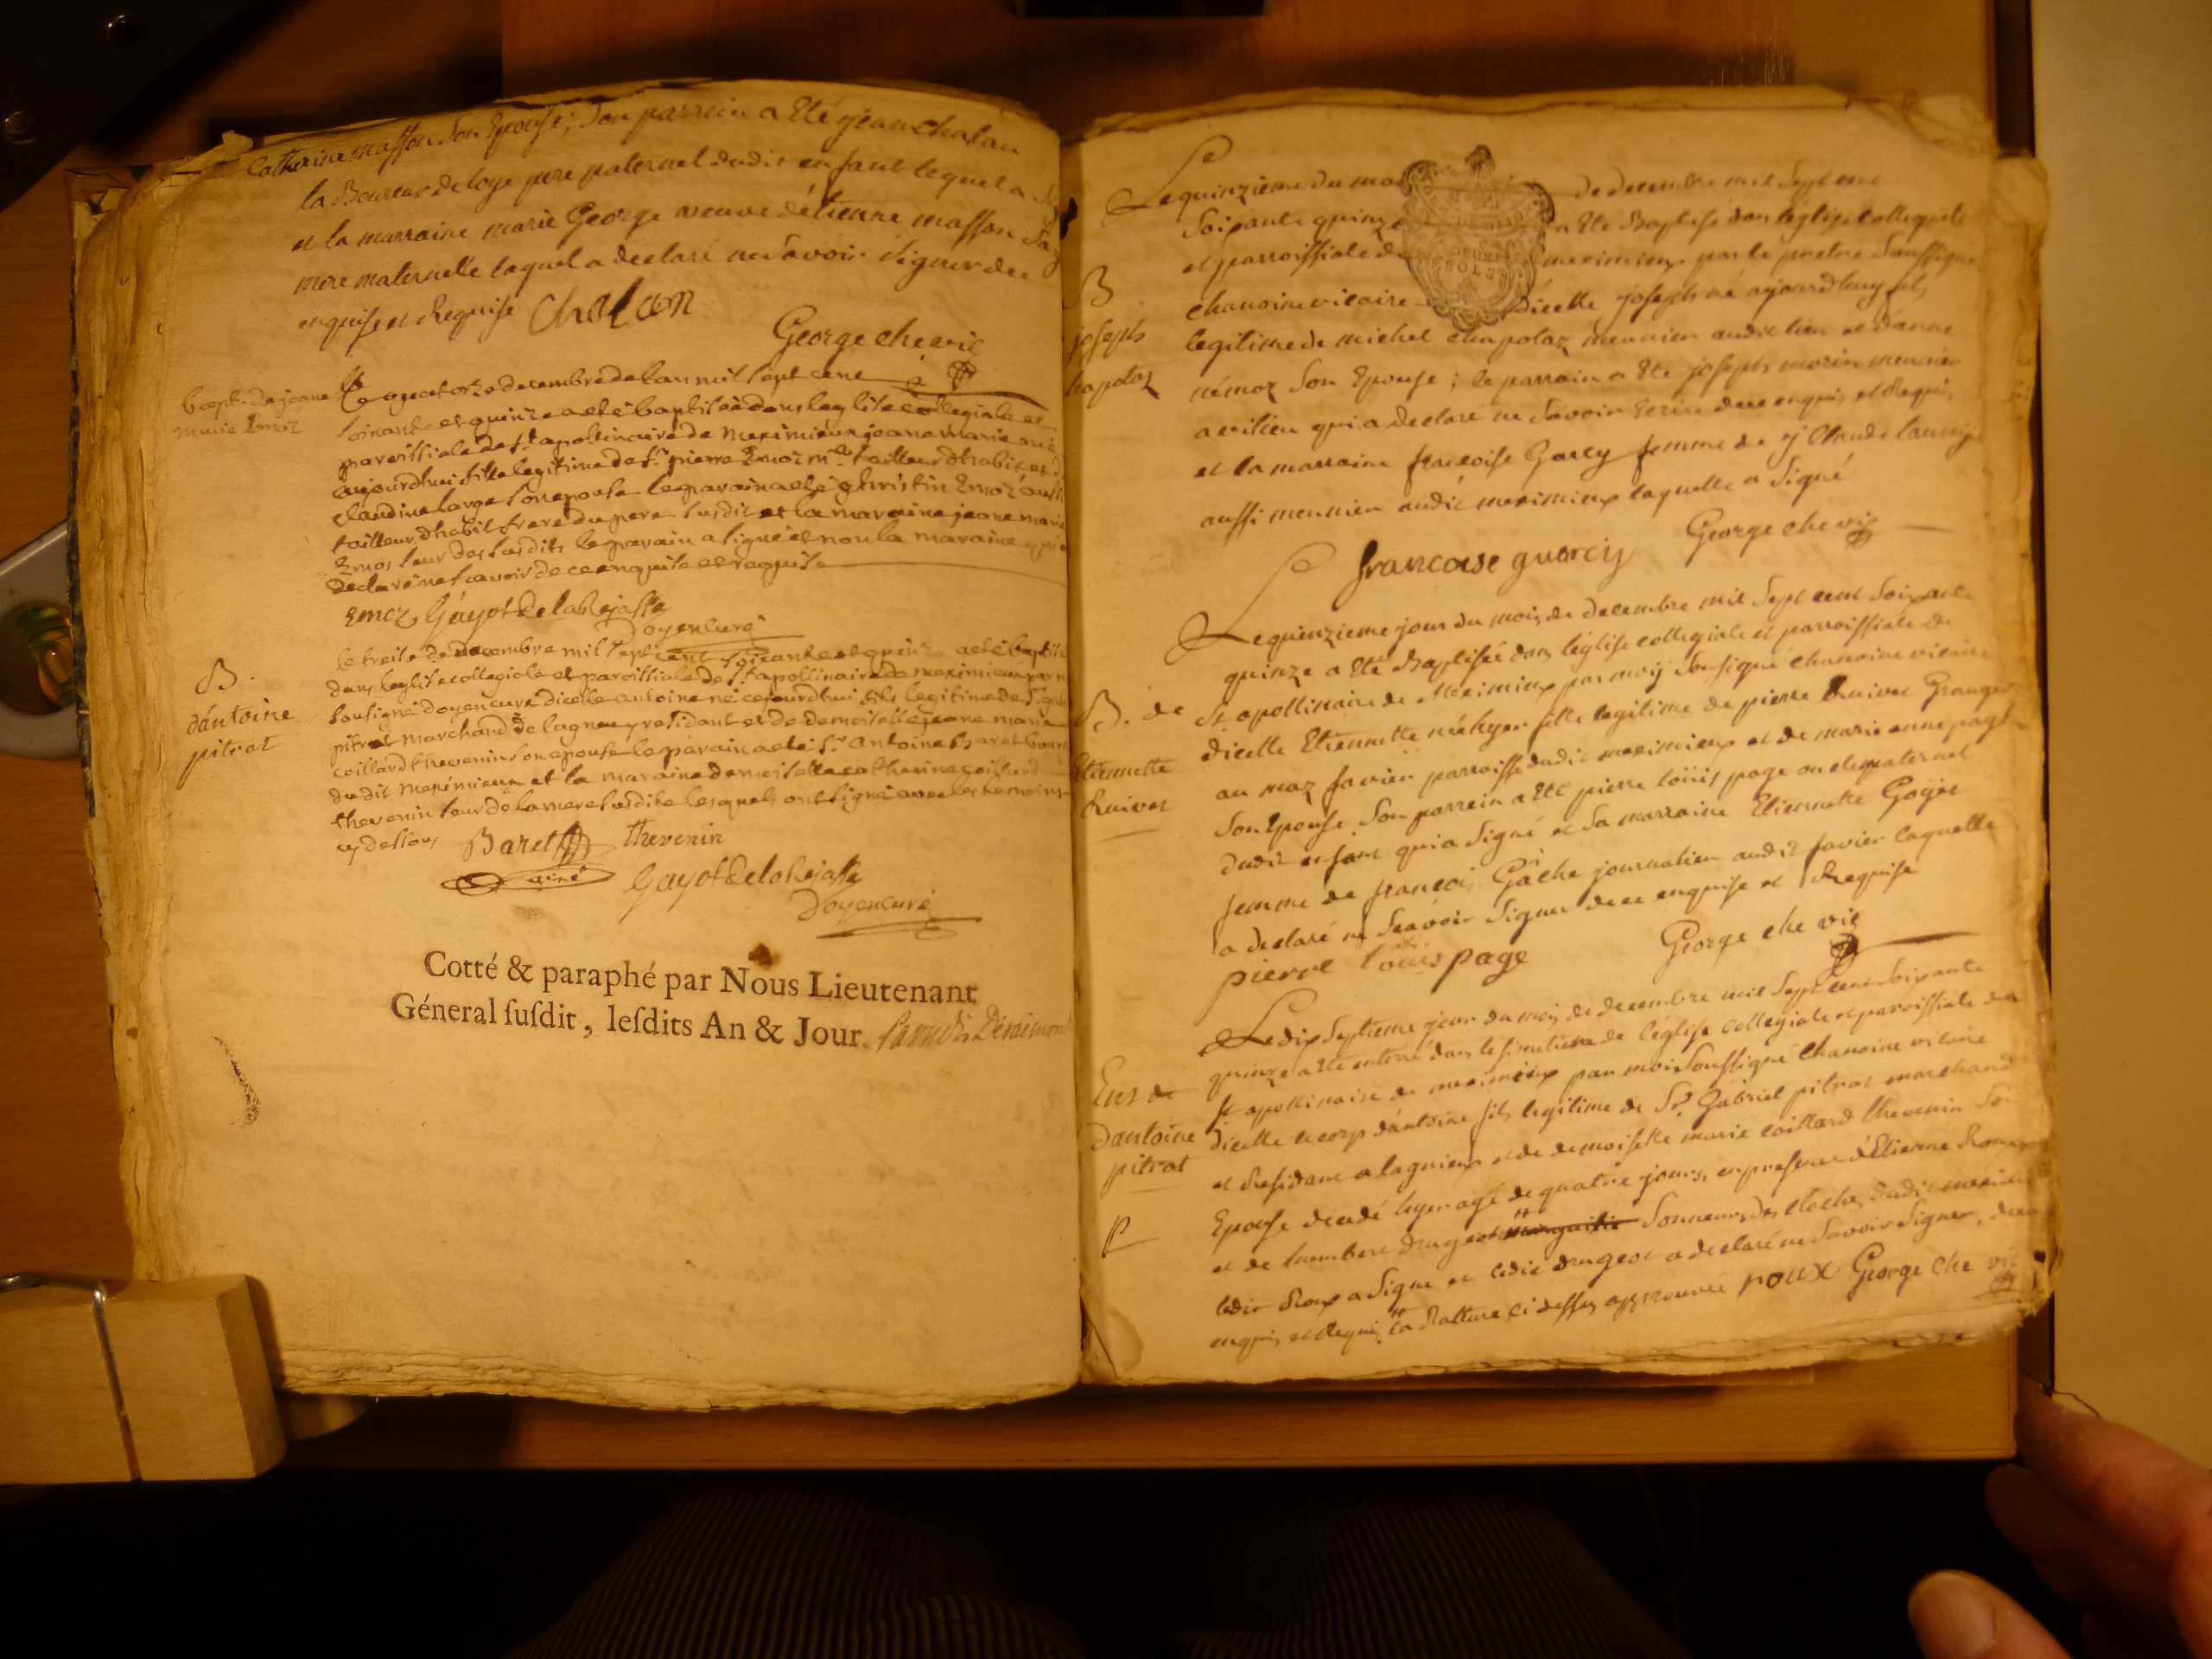 Catherine masson Son Epouse; Son parrein a Eté jean chalan
la Boureur deloye pere paternel dudit enfant lequel a
et la marraine marie George veuve détienne masson Sa
mere maternelle laquel a declaré ne Savoir Signer de ce
enquise et Requise Chalan
George che vic
bapt. de jeane
marie Emoz
Le quatorze decembre de lan mil sept cent
soixante et quinze a eté baptisée dans leglise collegiale et
paroissiale de st apollinaire de meximieux jeane marie née
aujourdhui fille legitime de sr pierre Emoz mtre tailleur dhabit et
claudine large son epouse le parain a eté christin Emoz aussi
tailleur dhabit frere du pere susdit et la maraine jeane marie
Emos seur des susdits le parain a signé et non la maraine qui a
declaré ne savoir de ce enquise et requise
Emoz Gayot de la Rejasse
Doyen curé
B.
dántoine
pitrat
le treise de decembre mil sept cent soixante et quinze a eté baptisé
dans leglise collegiale et paroissiale de st apollinaire de meximieux par
sousigné doyen curé dicelle antoine né cejourdhui fils legitime de sr
pitrat marchand de lagneu y residant et de demoiselle jeane marie
coillard thevenin son epouse le parain a eté sr antoine Baret
dudit meximieux et la maraine demoiselle catherine coillard
thevenin seur de la mere susdite lesquels ont signé avec les temoins
cy dessous Baret thevenin
ainé Gayot de la Rejasse
Doyen curé
Cotté & paraphé par Nous Lieutenant
Géneral ſuſdit, leſdits An & Jour.
B
joseph
hapolaz
Le quinzieme du mois de decembre mil Sept cent
Soixante quinze a Eté Baptisé dans léglise collegiale
et parroissiale de meximieux par le pretre Soussigné
chanoine vicaire dicelle joseph né ajourdhuy fils
legitime de michel chapolaz meunier audit lieu et danne
némoz Son Epouse; le parrain a Eté joseph morin meunier
a vilieu qui a declaré ne Savoir Ecrire de ce enquis et Requis
et la marraine françoise Garcy femme de Claude
aussi meunier audit meximieux laquelle a Signé
francoise guarcy George che vic
B. de
Etiennette
Ruivet
Le quinzieme jour du mois de decembre mil Sept cent Soixante
quinze a Eté Baptisée dans léglise collegiale et parroissiale de
St apollinaire de Meximieux par moy Sousigné chanoine vicaire
dicelle Etiennette née hyer fille legitime de pierre Ruivet Granger
au maz favier parroisse dudit meximieux et de marie anne page
Son Epouse Son parrein a Eté pierre loüis page oncle maternel
dudit enfant qui a Signé et Sa marraine Etiennette Goyet
femme de françois Gache journalier audit favier laquelle
a declaré ne Scavoir Signer de ce enquise et Requise
pierre louis page George che vic
Ent de
dantoine
pitrat
P
Le dix Septieme jour du mois de decembre mil Sept cent Soixante
quinze a Eté enterré dans le simetiere de léglise collegiale et parroissiale de
St appollinaire de meximieux par moi Soussigné Chanoine vicaire
dicelle le corp dántoine fils legitime de Sr Gabriel pitrat marchand
et Residant a lagnieux et de demoiselle marie coillard thevenin Son
Epouse decedé hyer agé de quatre jours, en presence dEtienne Roux
et de humbert drugeot Sonneurs des cloches dudit meximieux
ledit Roux a Signé et ledit drugeot a declaré ne Savoir Signer, de ce
enquis et Requis, la Ratture ci dessus approuvée roux George che vic